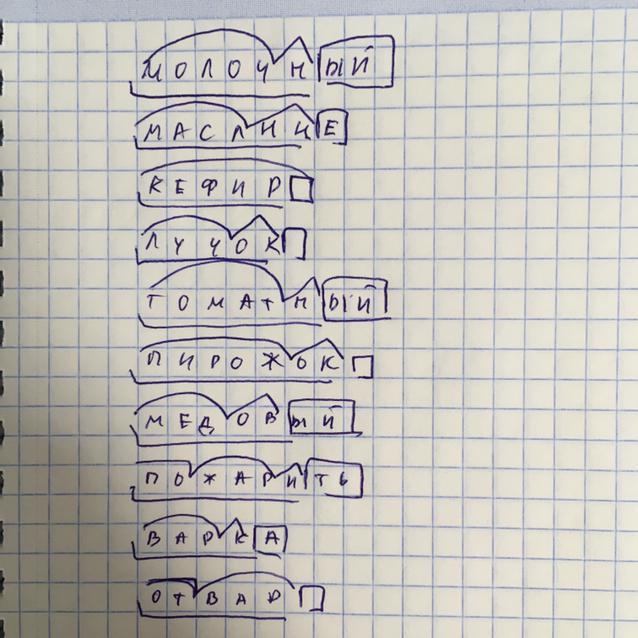 МОЛОЧНЫЙ
МАСЛИНЕ
КЕФИР
ЛУЧОК
ТОМАТНЫЙ
ПИРОЖОК
МЕДОВЫЙ
ПОЖАРИТЬ
ВАРКА
ОТВАР